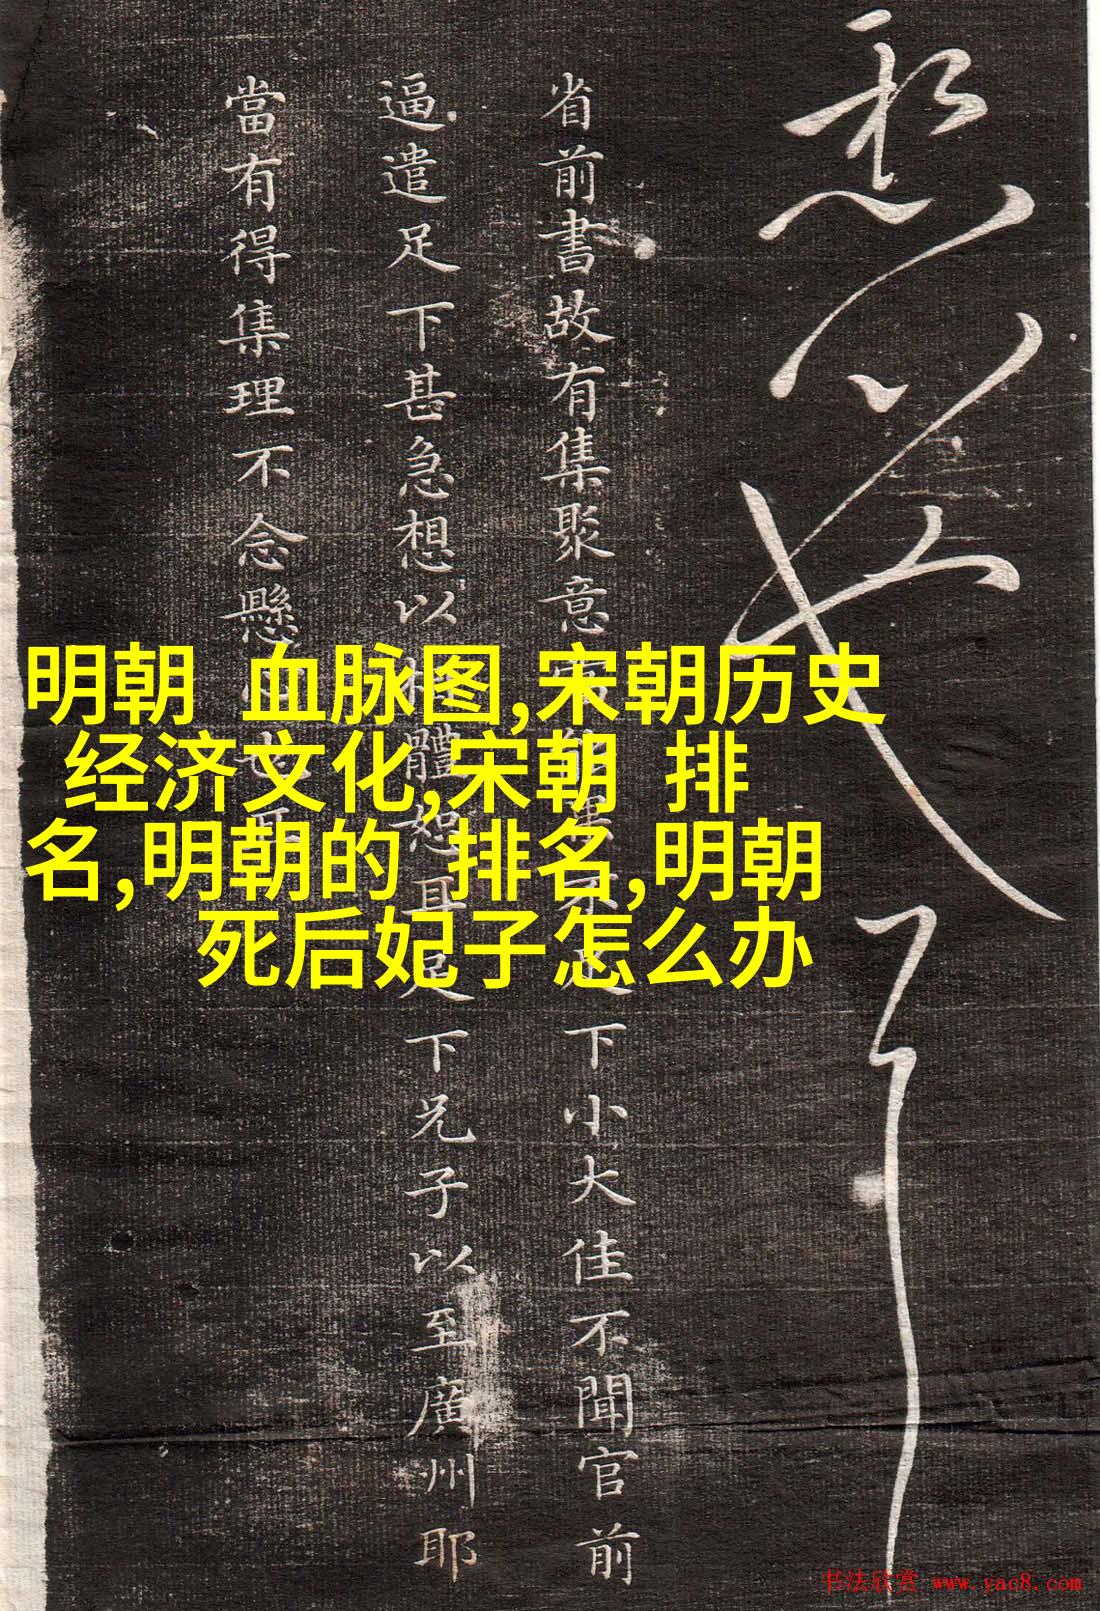 省前書故有集聚意
下小大佳不聞官前
逼遣足下甚急想以
體恕耳足下兄子以至廣州耶
當有得集理不念懸
也
明朝 血脉图,宋朝历史
经济文化,宋朝 排
名,明朝的 排名,明朝
死后妃子怎么办
书法欣赏 www.yac8.com